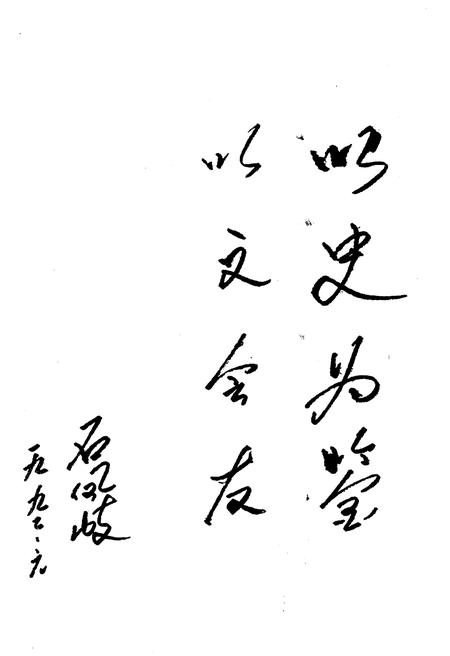 以史为鉴
以文会友
石佩岐
一九九二·六